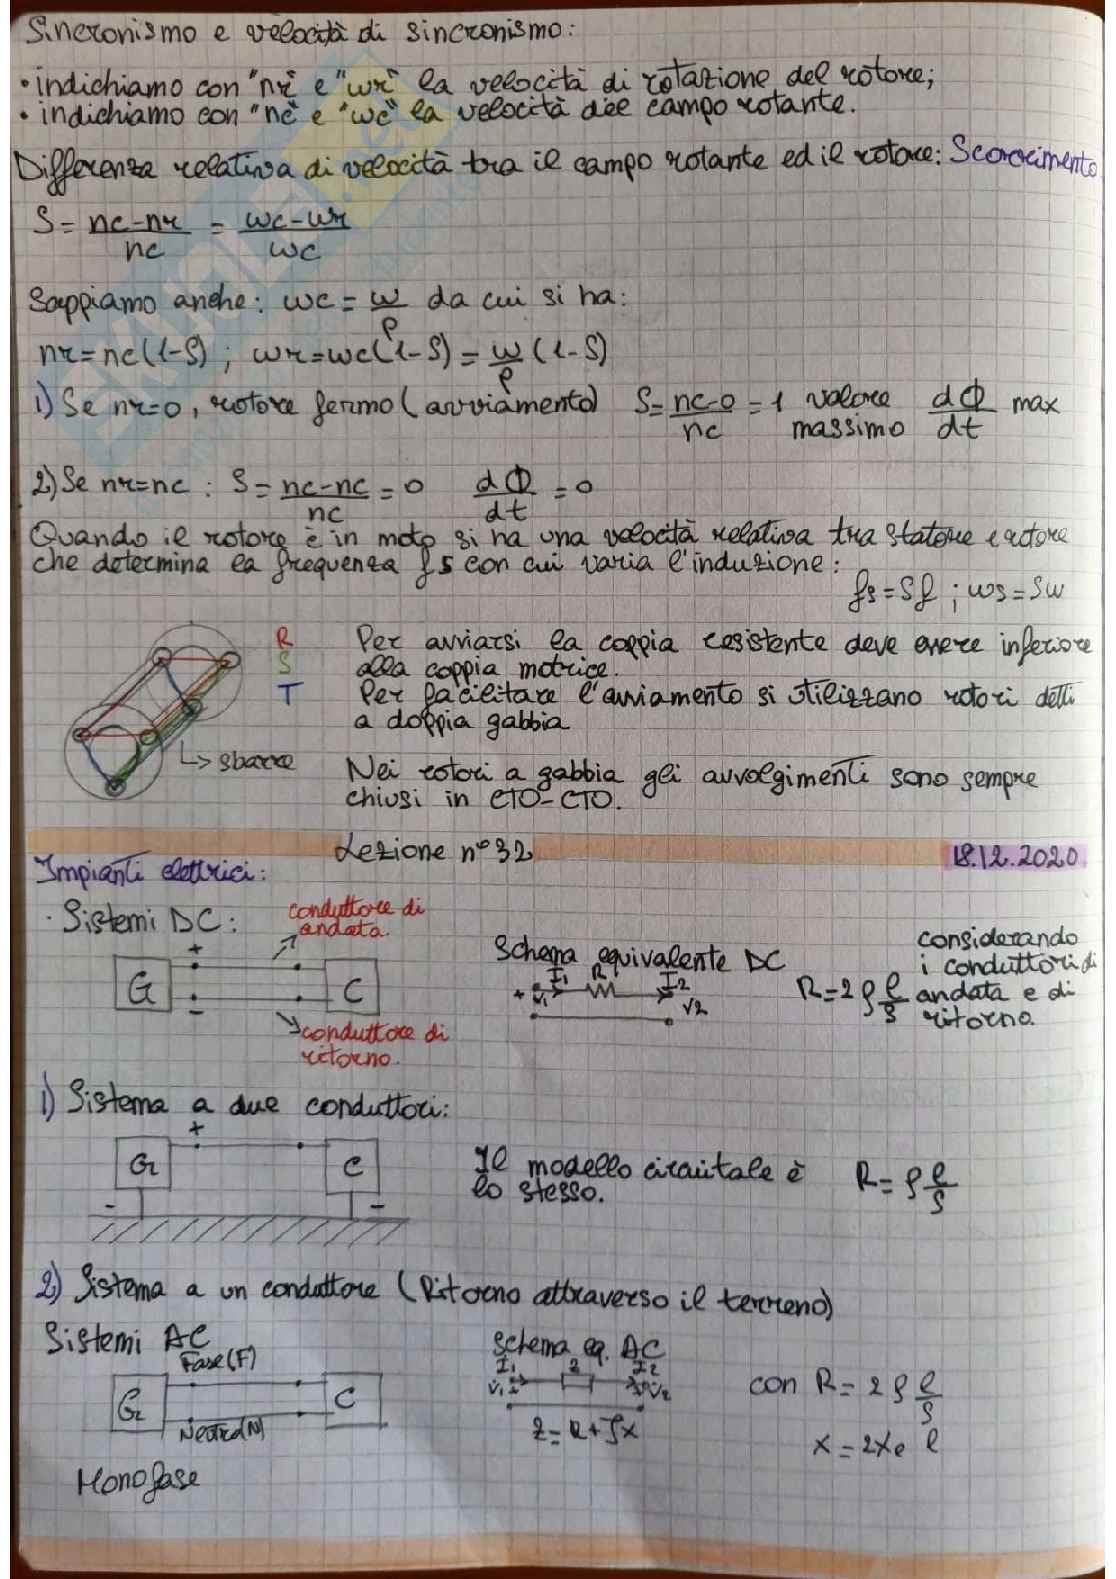 Sincronismo e velocità di sincronismo:
• indichiamo con "nr" e "ωr" la velocità di rotazione del rotore;
• indichiamo con "nc" e "ωc" la velocità del campo rotante.
Differenza relativa di velocità tra il campo rotante ed il rotore: Scorrimento
S = nc-nr/nc = ωc-ωr/ωc
Sappiamo anche: ωc = ω/p da cui si ha:
nr = nc(1-S) ; ωr = ωc(1-S) = ω/p (1-S)
1) Se nr=0, rotore fermo (avviamento) S = nc-0/nc = 1 valore massimo dΦ/dt max
2) Se nr=nc : S = nc-nc/nc = 0 dΦ/dt = 0
Quando il rotore è in moto si ha una velocità relativa tra statore e rotore
che determina la frequenza fs con cui varia l'induzione:
fs = Sf ; ωs = Sω
R
S
T
Per avviarsi la coppia resistente deve essere inferiore
alla coppia motrice.
Per facilitare l'avviamento si utilizzano rotori detti
a doppia gabbia
↳ sbarre
Nei rotori a gabbia gli avvolgimenti sono sempre
chiusi in CTO-CTO.
Lezione n° 32
18.12.2020
Impianti elettrici:
· Sistemi DC:
conduttore di
andata.
+
G
C
-
conduttore di
ritorno.
Schema equivalente DC
I1 R I2
+ V1 V2
R = 2ρ l/S
considerando
i conduttori di
andata e di
ritorno.
1) Sistema a due conduttori:
+
G
C
-
-
Il modello circuitale è
lo stesso.
R = ρ l/S
2) Sistema a un conduttore (Ritorno attraverso il terreno)
Sistemi AC
Fase (F)
G
C
Neutro (N)
Monofase
Schema eq. AC
I1 Z I2
V1 V2
Z = R + Jx
con R = 2ρ l/S
x = 2xe l